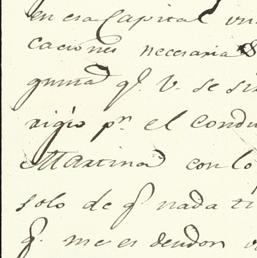 en esa Capital un
caciones necesarias
guna q.e V. se si
rigio p.r el Condu
Martina con lo
solo de q.e nada ti
q.e me es deudor